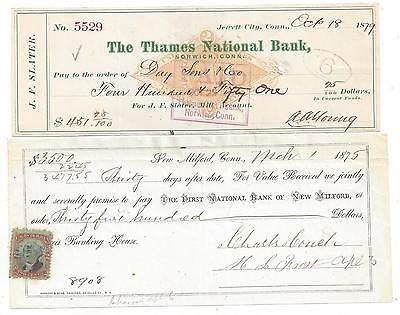 No. 5529
Jewett City, Conn., Oct 18 1879
The Thames National Bank,
NORWICH, CONN.
J. F. SLATER.
Pay to the order of Day Sons & Co
Four Hundred & Fifty One 25/100 Dollars,
In Current Funds.
For J. F. Slater, Mill Account.
$451.25/100
Norwich, Conn.
A A Young
$3500
22.45
3477.55
New Milford, Conn., Mch 1 1875
Thirty days after date, For Value Received we jointly
and severally promise to pay THE FIRST NATIONAL BANK OF NEW MILFORD, or
order, Thirty five hundred Dollars,
at their Banking House.
Charles Couch
8908